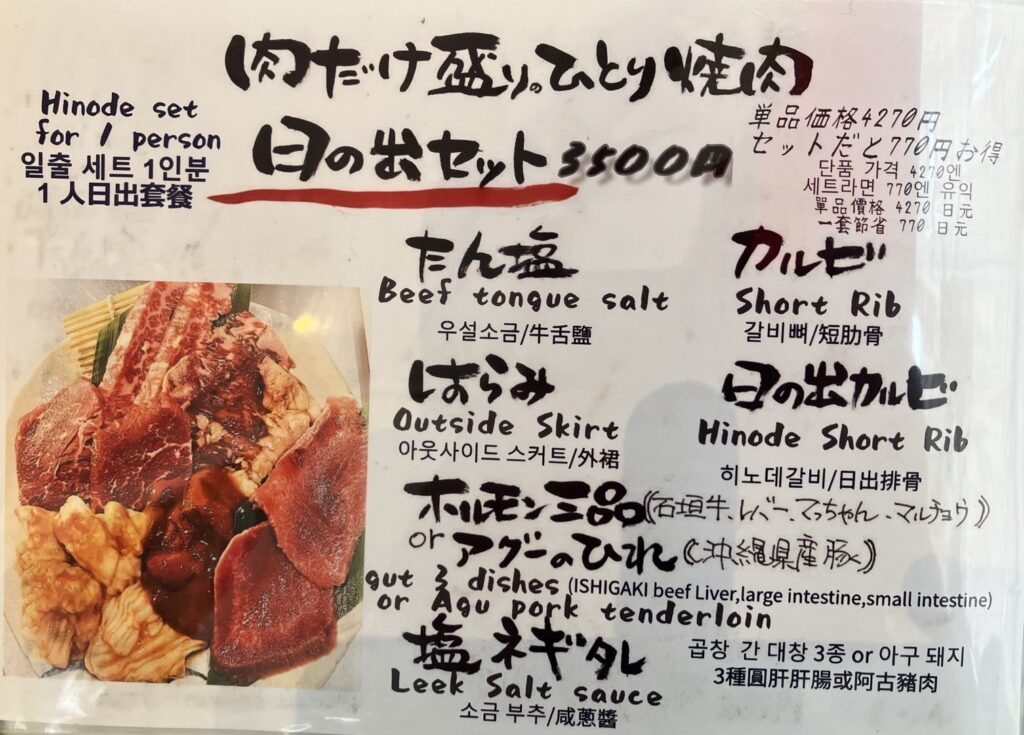 肉だけ盛りのひとり焼肉
Hinode set
for 1 person
일출 세트 1인분
1 人日出套餐
日の出セット 3500円
単品価格4270円
セットだと770円お得
단품 가격 4270엔
세트라면 770엔 유익
單品價格 4270 日元
一套節省 770 日元
たん塩
Beef tongue salt
우설소금/牛舌鹽
カルビ
Short Rib
갈비뼈/短肋骨
はらみ
Outside Skirt
아웃사이드 스커트/外裙
日の出カルビ
Hinode Short Rib
히노데갈비/日出排骨
ホルモン三品(石垣牛、レバー、てっちゃん、マルチョウ)
or アグーのひれ《沖縄県産豚》
gut 3 dishes (ISHIGAKI beef Liver,large intestine,small intestine)
or Agu pork tenderloin
곱창 간 대창 3종 or 아구 돼지
3種圓肝肝腸或阿古豬肉
塩ネギタレ
Leek Salt sauce
소금 부추/咸蔥醬